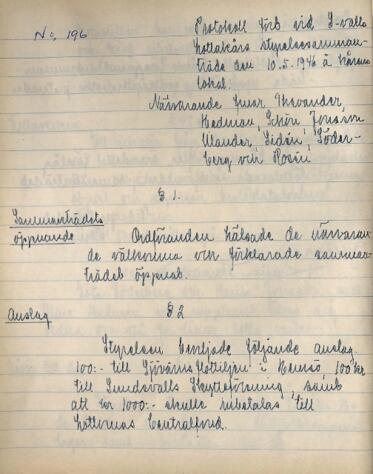 No 196
Protokoll förb vid S-valls
lottakårs styrelsesamman-
träde den 10.5.1946 å kårens
lokal.
Närvarande fruar Thevander,
Hedman, Schön, Jonsson
Wander, Lidén, Söder-
berg och Rosén
§ 1.
Sammanträdets
öppnande
Ordföranden hälsade de närvaran-
de välkomna och förklarade samman-
trädet öppnat.
Anslag
§ 2
Styrelsen beviljade följande anslag
100:- till Sjövärnslottiljen i Hemsö, 100 kr
till Sundsvalls Skytteförening, samt
att kr 1000:- skulle inbetalas till
Lottornas Centralfond.